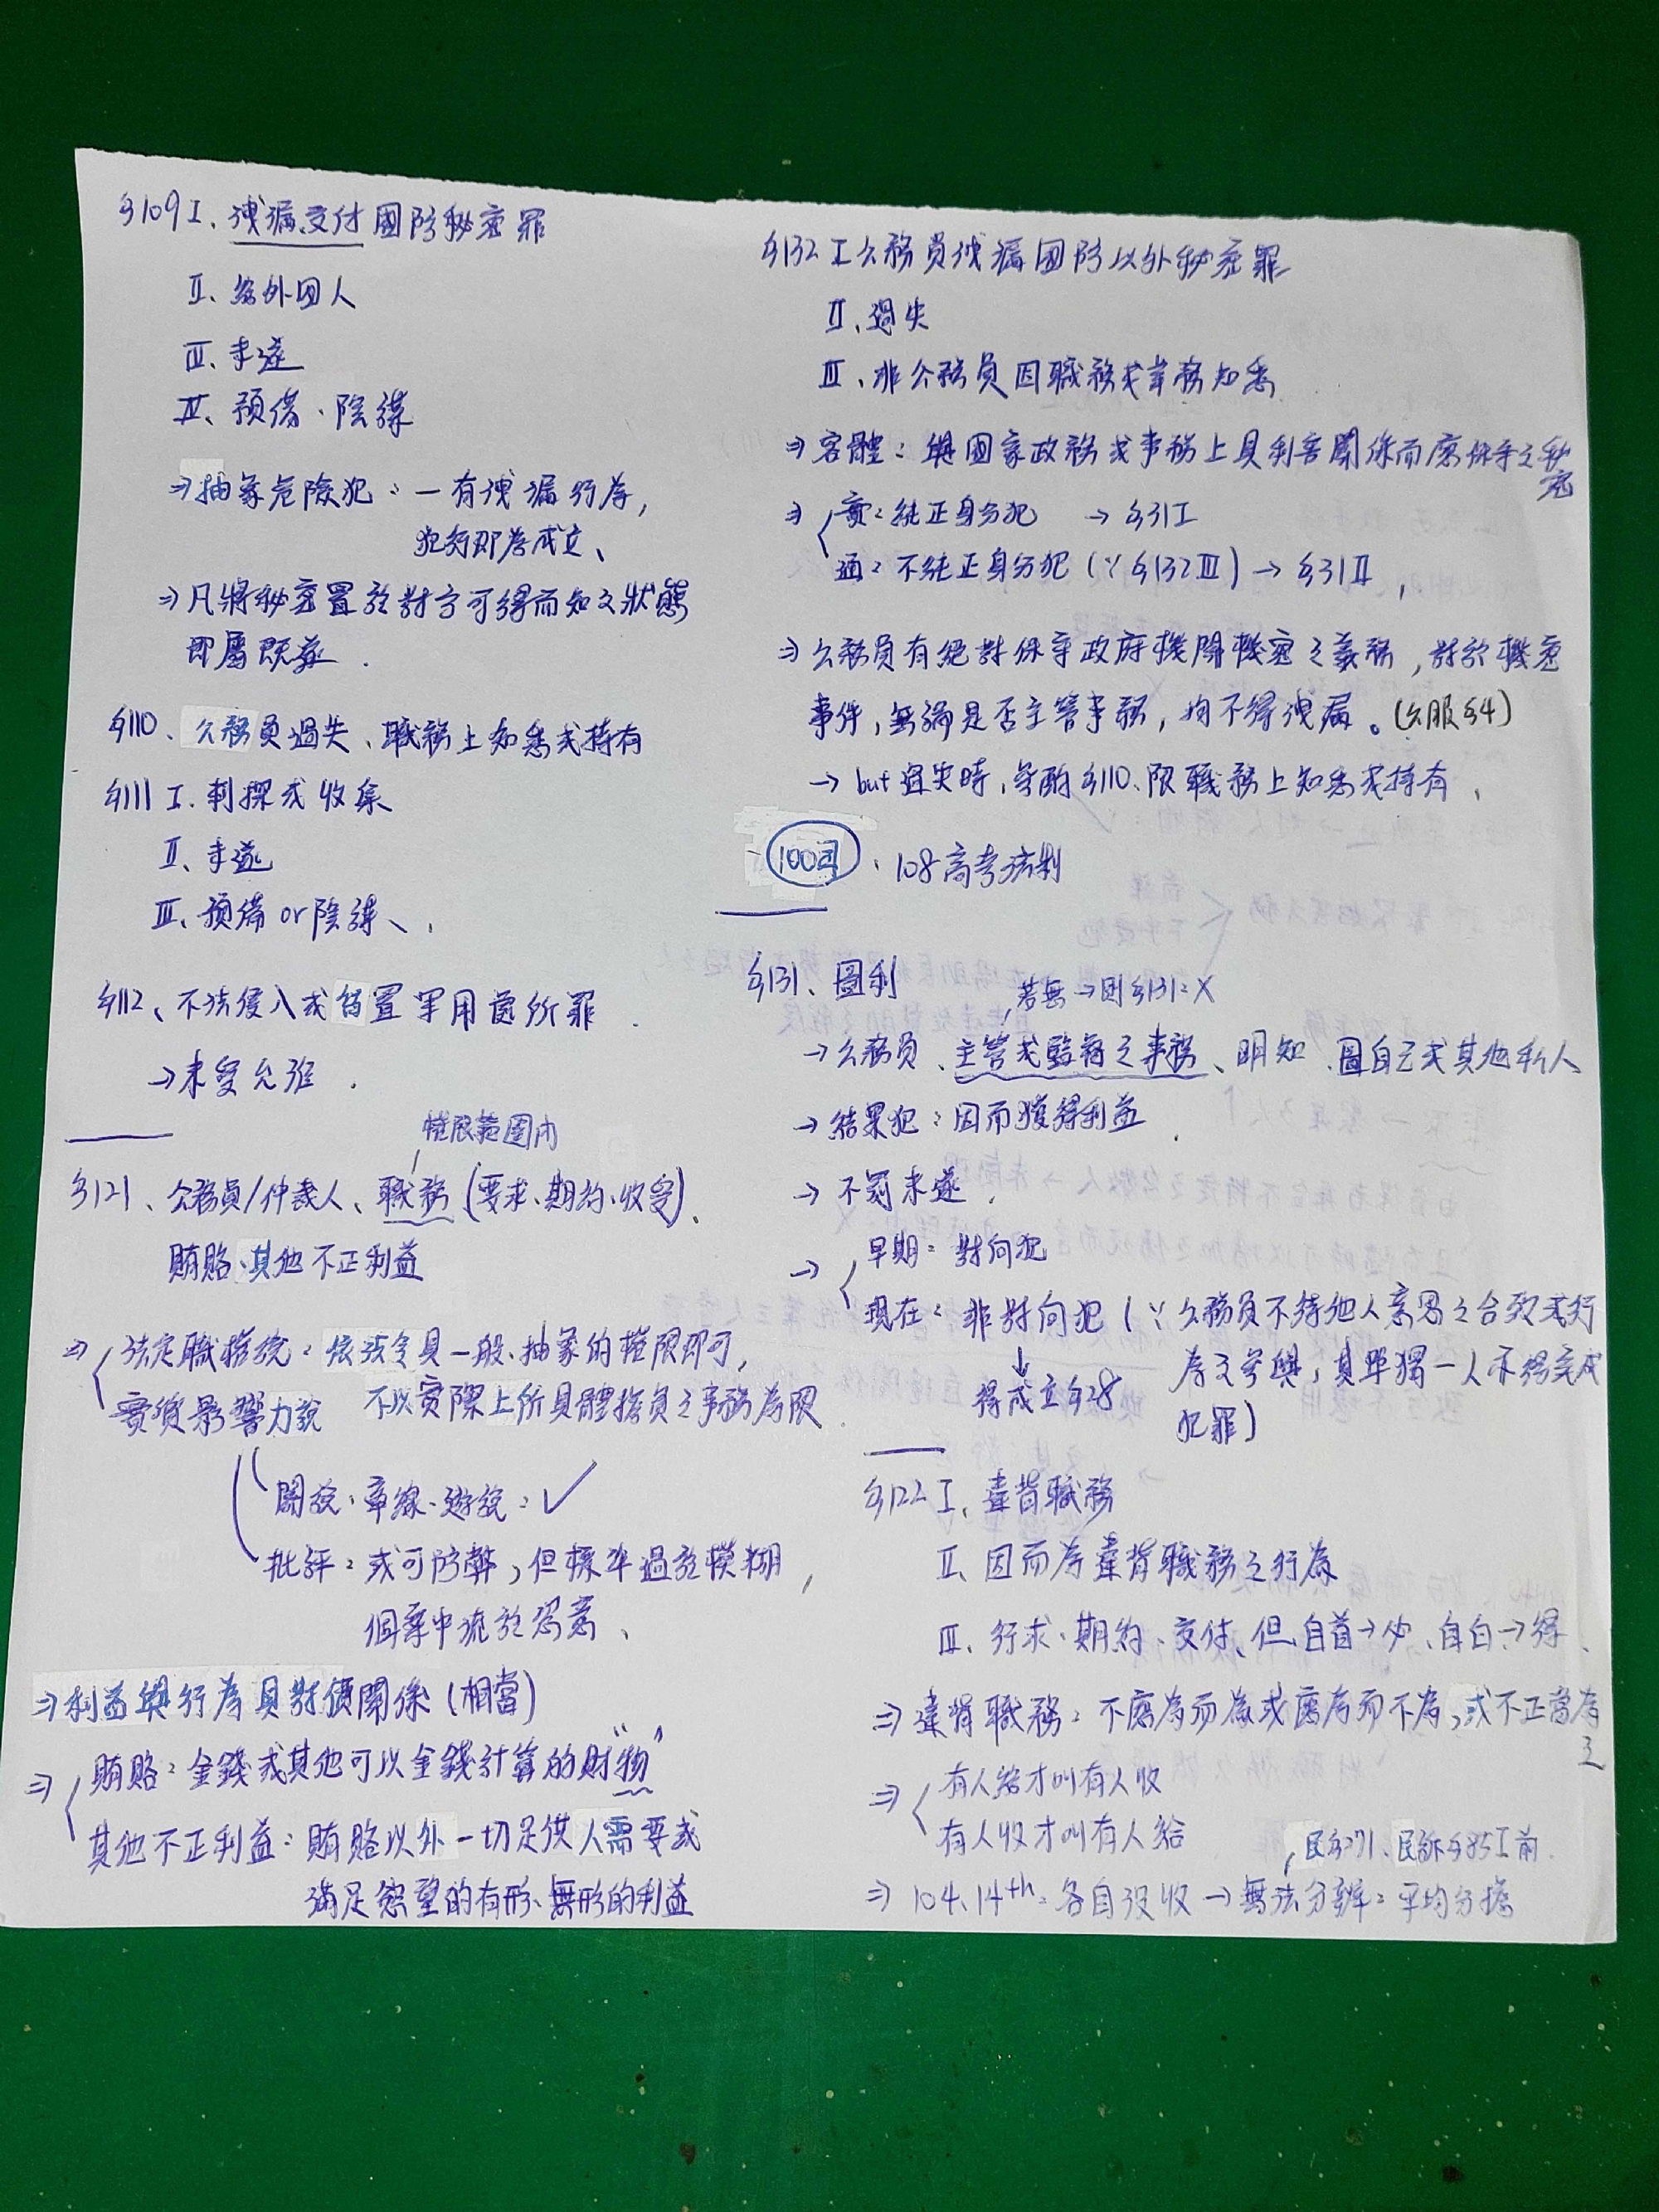 §109 I、洩漏、交付國防秘密罪
II、給外国人
III、未遂
IV、預備、陰謀
⇒抽象危險犯：一有洩漏行為，
犯行即為成立、
⇒凡將秘密置於對方可得而知之狀態
即屬既遂.
§110、公務員過失、職務上知悉或持有
§111 I. 刺探或收集
II、未遂
III、預備or陰謀、
§112、不法侵入或留置軍用處所罪.
→未受允准.
權限範圍內
§121、公務員/仲裁人、職務(要求、期約、收受)、
賄賂、其他不正利益
⇒ 法定職權說：依法令具一般、抽象的權限即可,
不以實際上所具體擔負之事務為限.
實質影響力說
關說、牽線、遊說：✓
批評：或可防弊，但標準過於模糊,
個案中流於恣意、
⇒利益與行為具對價關係(相當)
⇒ 賄賂：金錢或其他可以金錢計算的財"物"
其他不正利益：賄賂以外一切足供人需要或
滿足慾望的有形、無形的利益
§132 I 公務員洩漏国防以外秘密罪
II、過失
III、非公務員因職務或業務知悉
⇒客體：與國家政務或事務上具利害關係而應保守之秘
密
⇒ 實：純正身分犯 → §31 I
通：不純正身分犯 (∵§132 III) → §31 II,
⇒公務員有絕對保守政府機關機密之義務，對於機密
事件，無論是否主管事務，均不得洩漏。(公服§4)
→ but過失時，參酌§110、限職務上知悉或持有、
100司、108高考法制
§131、圖利
若無→則§131：X
→公務員、主管或監督之事務、明知、圖自己或其他私人
→結果犯：因而獲得利益.
→不罰未遂.
→ 早期：對向犯
現在：非對向犯 (∵公務員不待他人意思之合致或行
為之參與，其單獨一人亦得完成
犯罪)
↓
得成立§28
§122 I、違背職務
II、因而為違背職務之行為
III、行求、期約、交付、但、自首→必、自白→得、
⇒違背職務：不應為而為或應為而不為，或不正當為
之
⇒ 有人給才叫有人收
有人收才叫有人給
民§271、民訴§85 I 前.
⇒ 104、14th：各自沒收→無法分辨：平均分擔